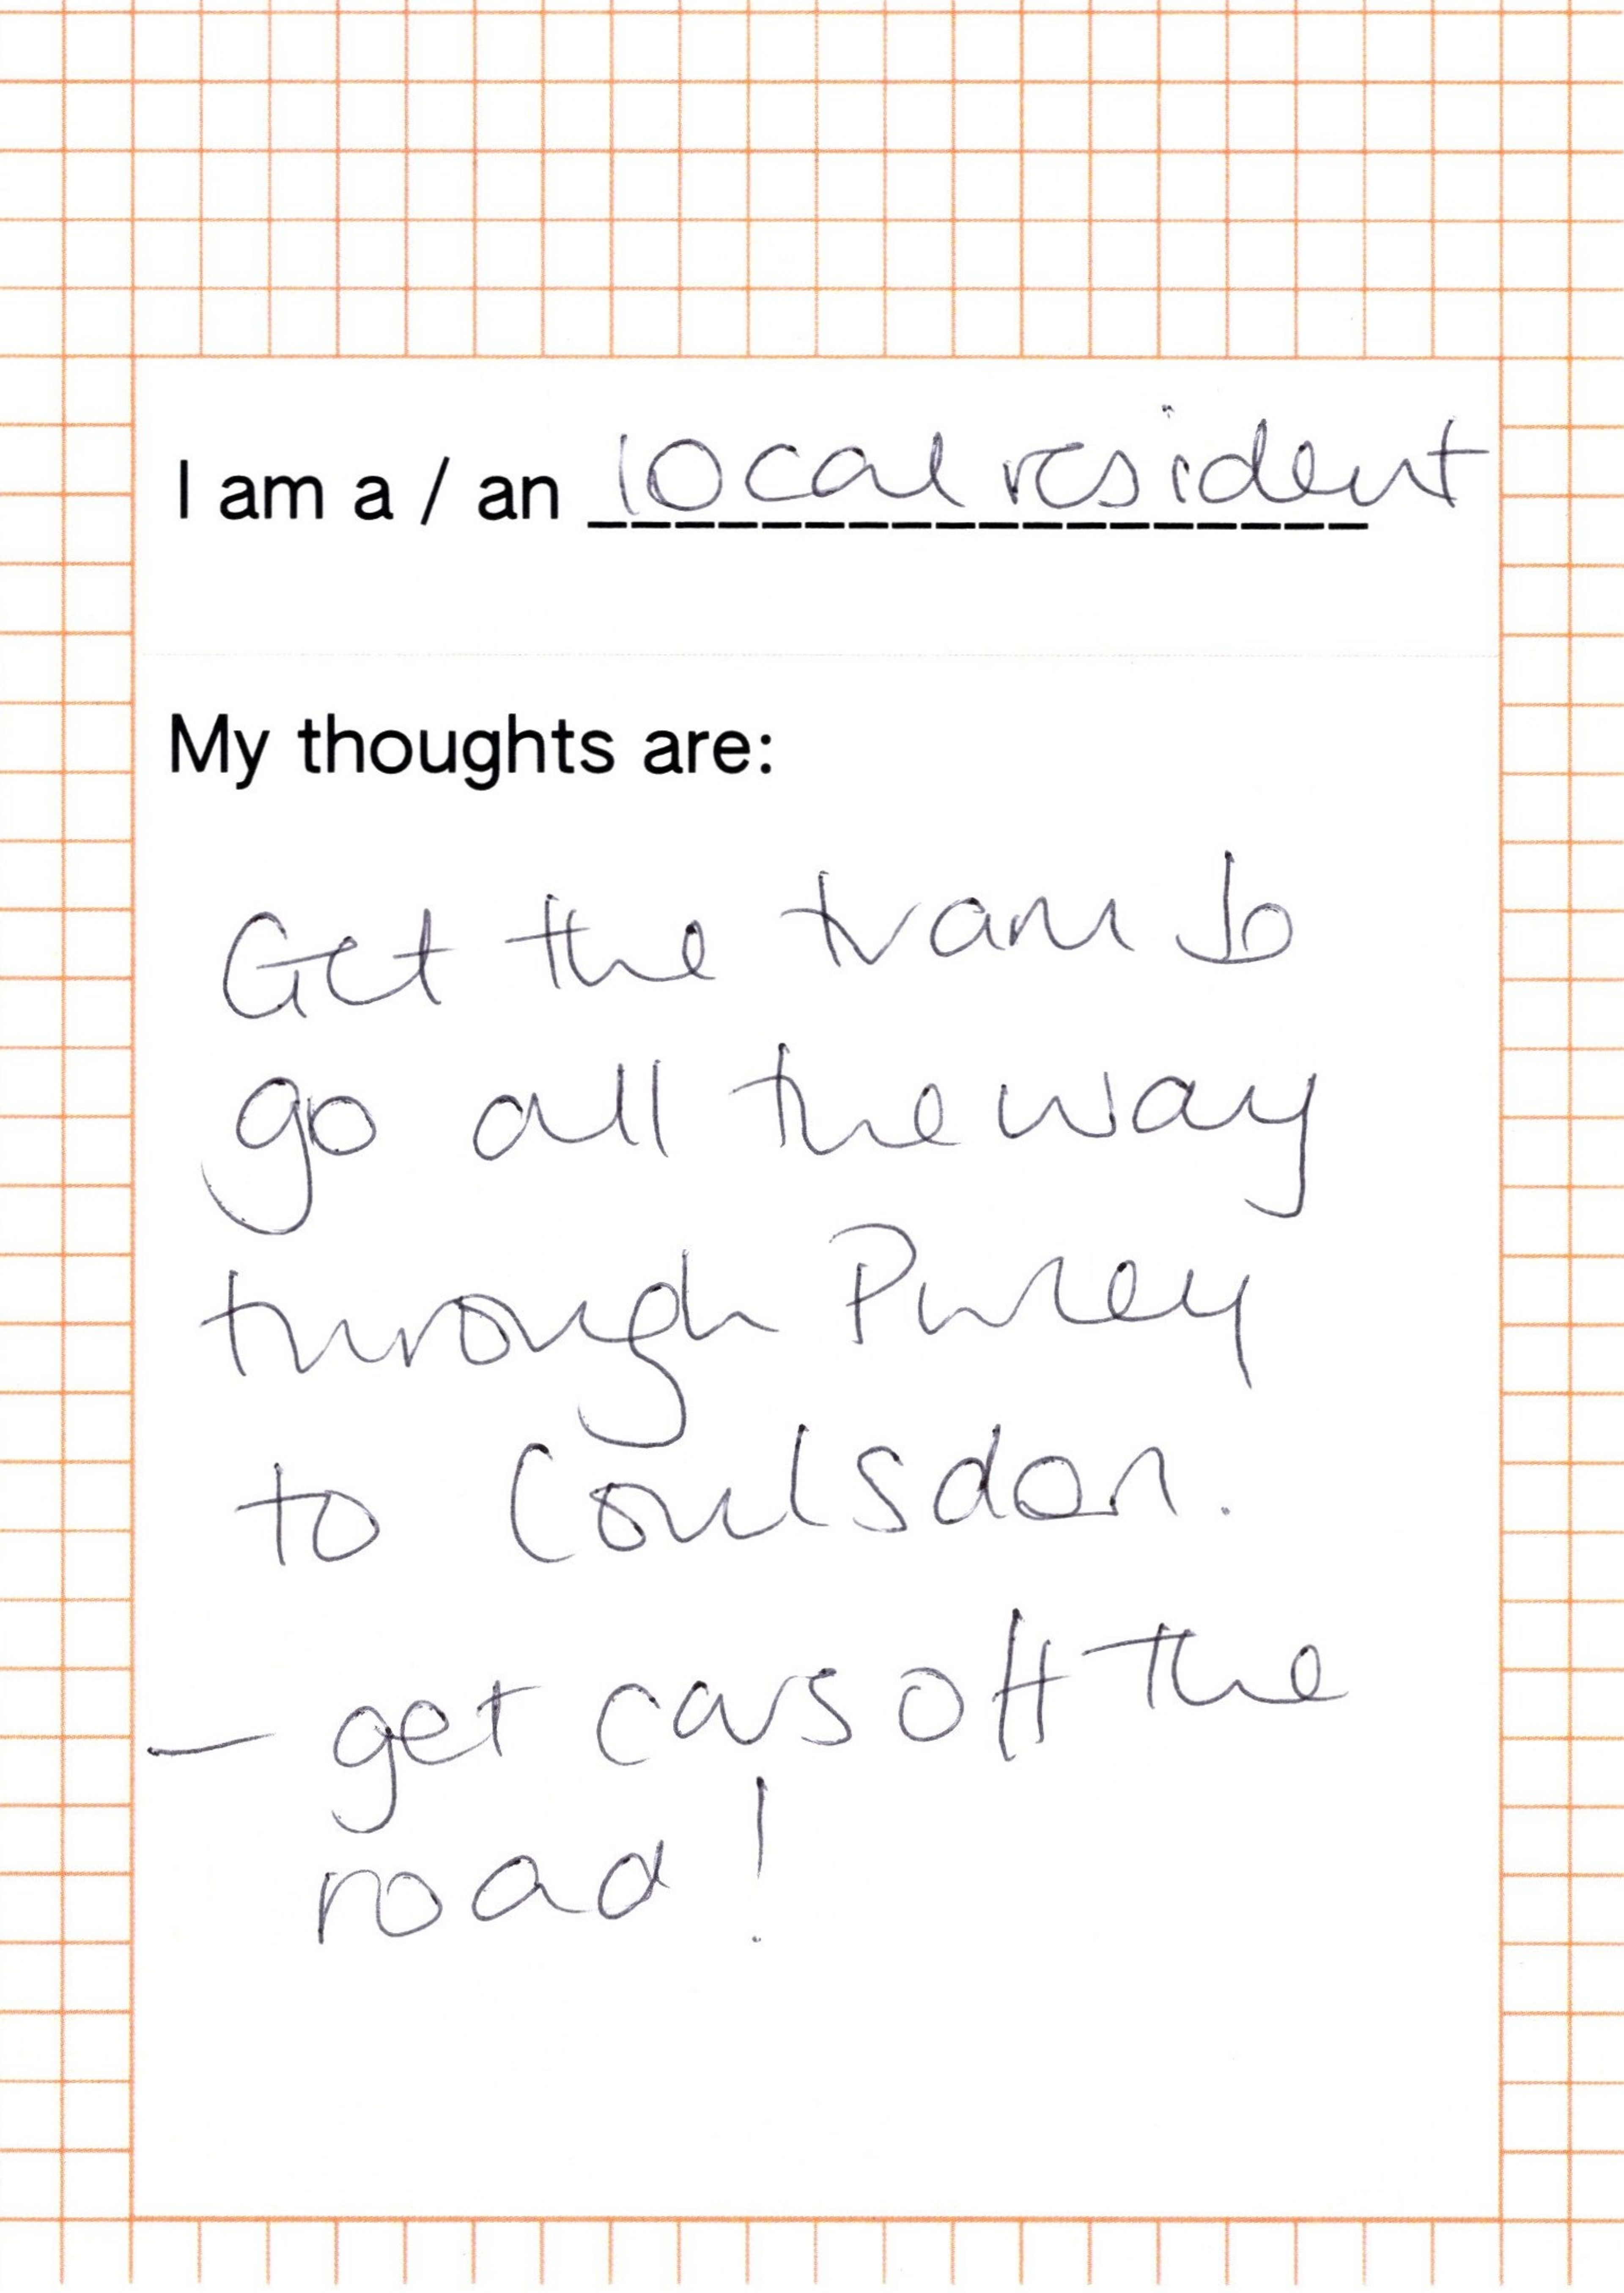 I am a / an local resident
My thoughts are:
Get the tram to
go all the way
through Purley
to Coulsdon.
- get cars off the
road!